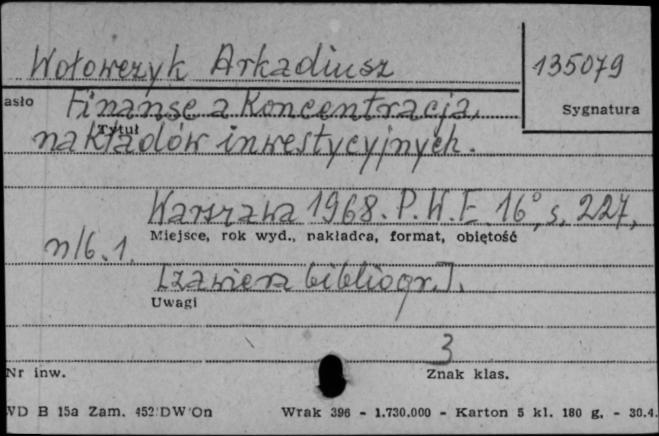 Wołowczyk Arkadiusz
135079
asło
Sygnatura
Finanse a koncentracja
Tytuł
nakładów inwestycyjnych.
Warszawa 1968. P.W.E. 16°, s. 227,
Miejsce, rok wyd., nakładca, format, objętość
nlb. 1.
[zawiera bibliogr.].
Uwagi
3
Nr inw.
Znak klas.
WD B 15a Zam. 452/DW/On Wrak 396 - 1.730.000 - Karton 5 kl. 180 g. - 30.4.